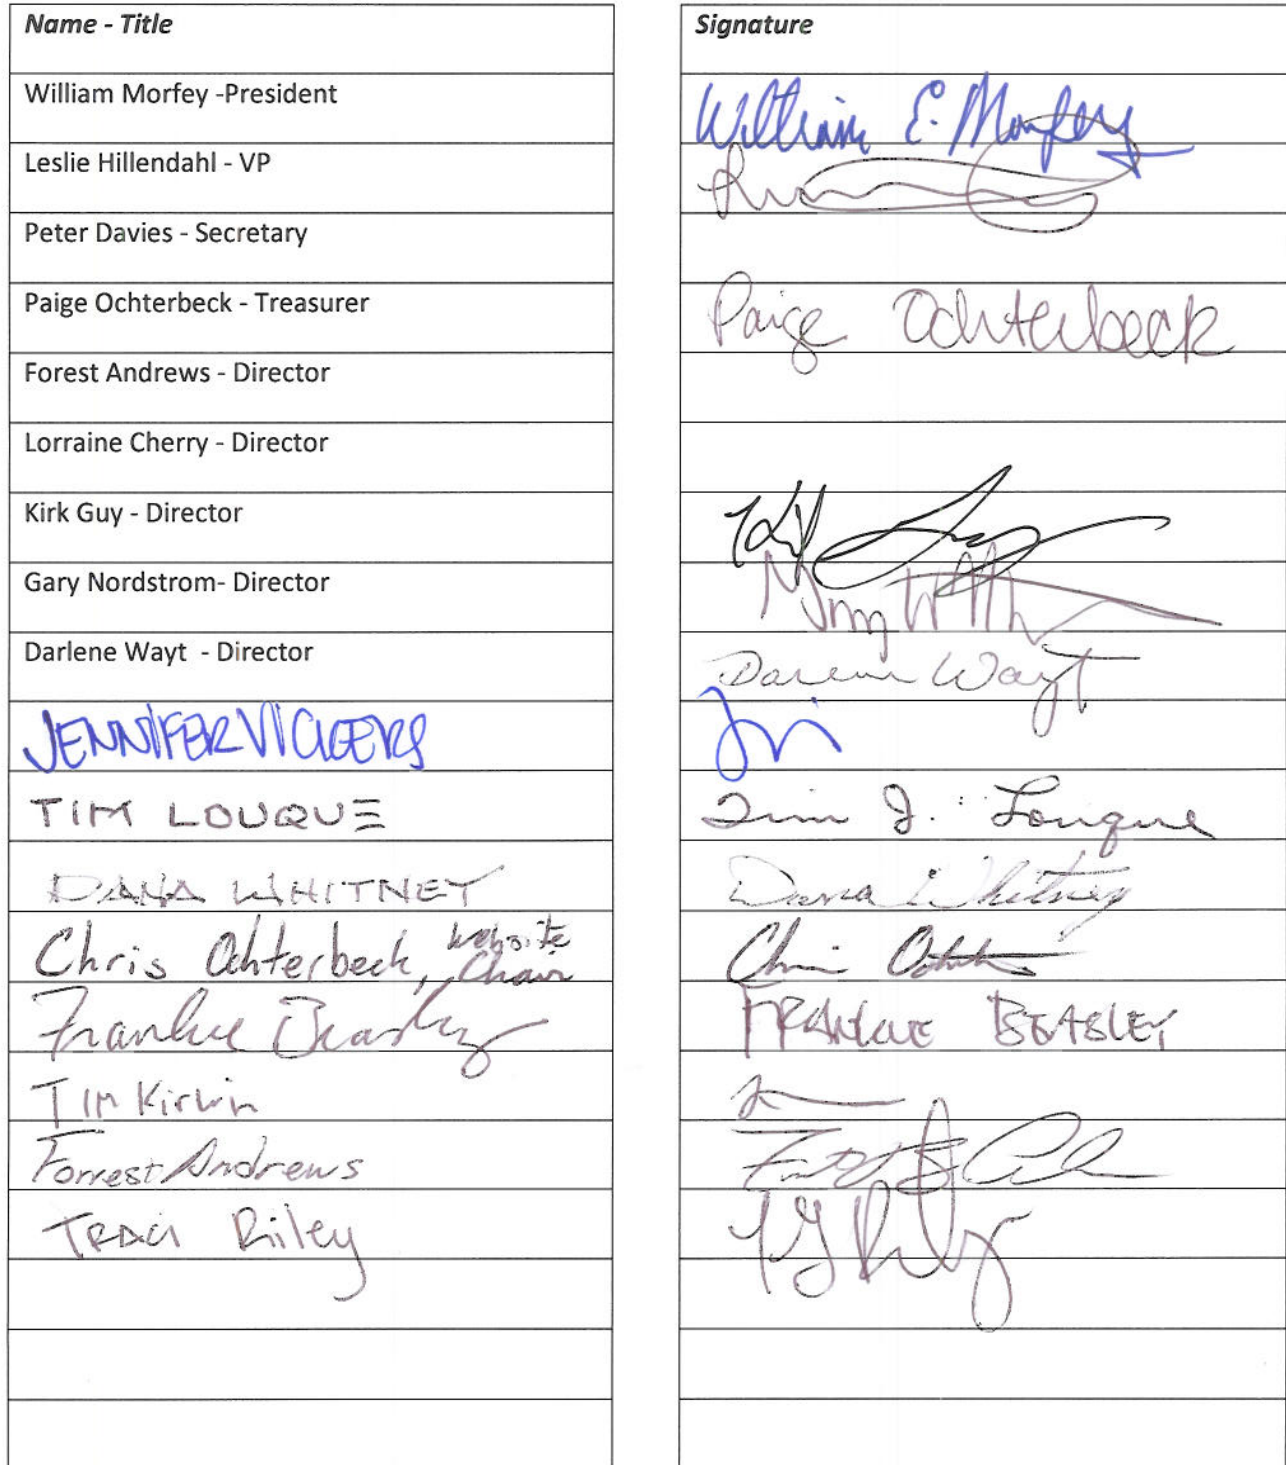 Name - Title Signature
William Morfey -President William E. Morfey
Leslie Hillendahl - VP
Peter Davies - Secretary
Paige Ochterbeck - Treasurer Paige Ochterbeck
Forest Andrews - Director
Lorraine Cherry - Director
Kirk Guy - Director
Gary Nordstrom- Director
Darlene Wayt - Director Darlene Wayt
JENNIFER VICKERS
TIM LOUQUE Tim J. Louque
DANA WHITNEY Dana Whitney
Chris Ochterbeck, Website Chair Chris
Frankie Beasley FRANKIE BEASLEY
TIM Kirwin
Forrest Andrews
TRACI Riley